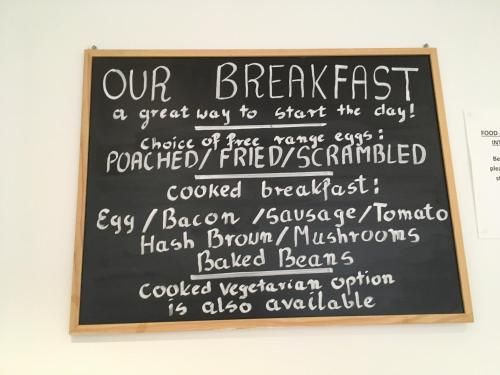 OUR BREAKFAST
a great way to start the day!
choice of free range eggs:
POACHED/FRIED/SCRAMBLED
cooked breakfast:
Egg/Bacon/sausage/Tomato
Hash Brown/Mushrooms
Baked Beans
Cooked vegetarian option
is also available
FOOD
INT
Be
plea